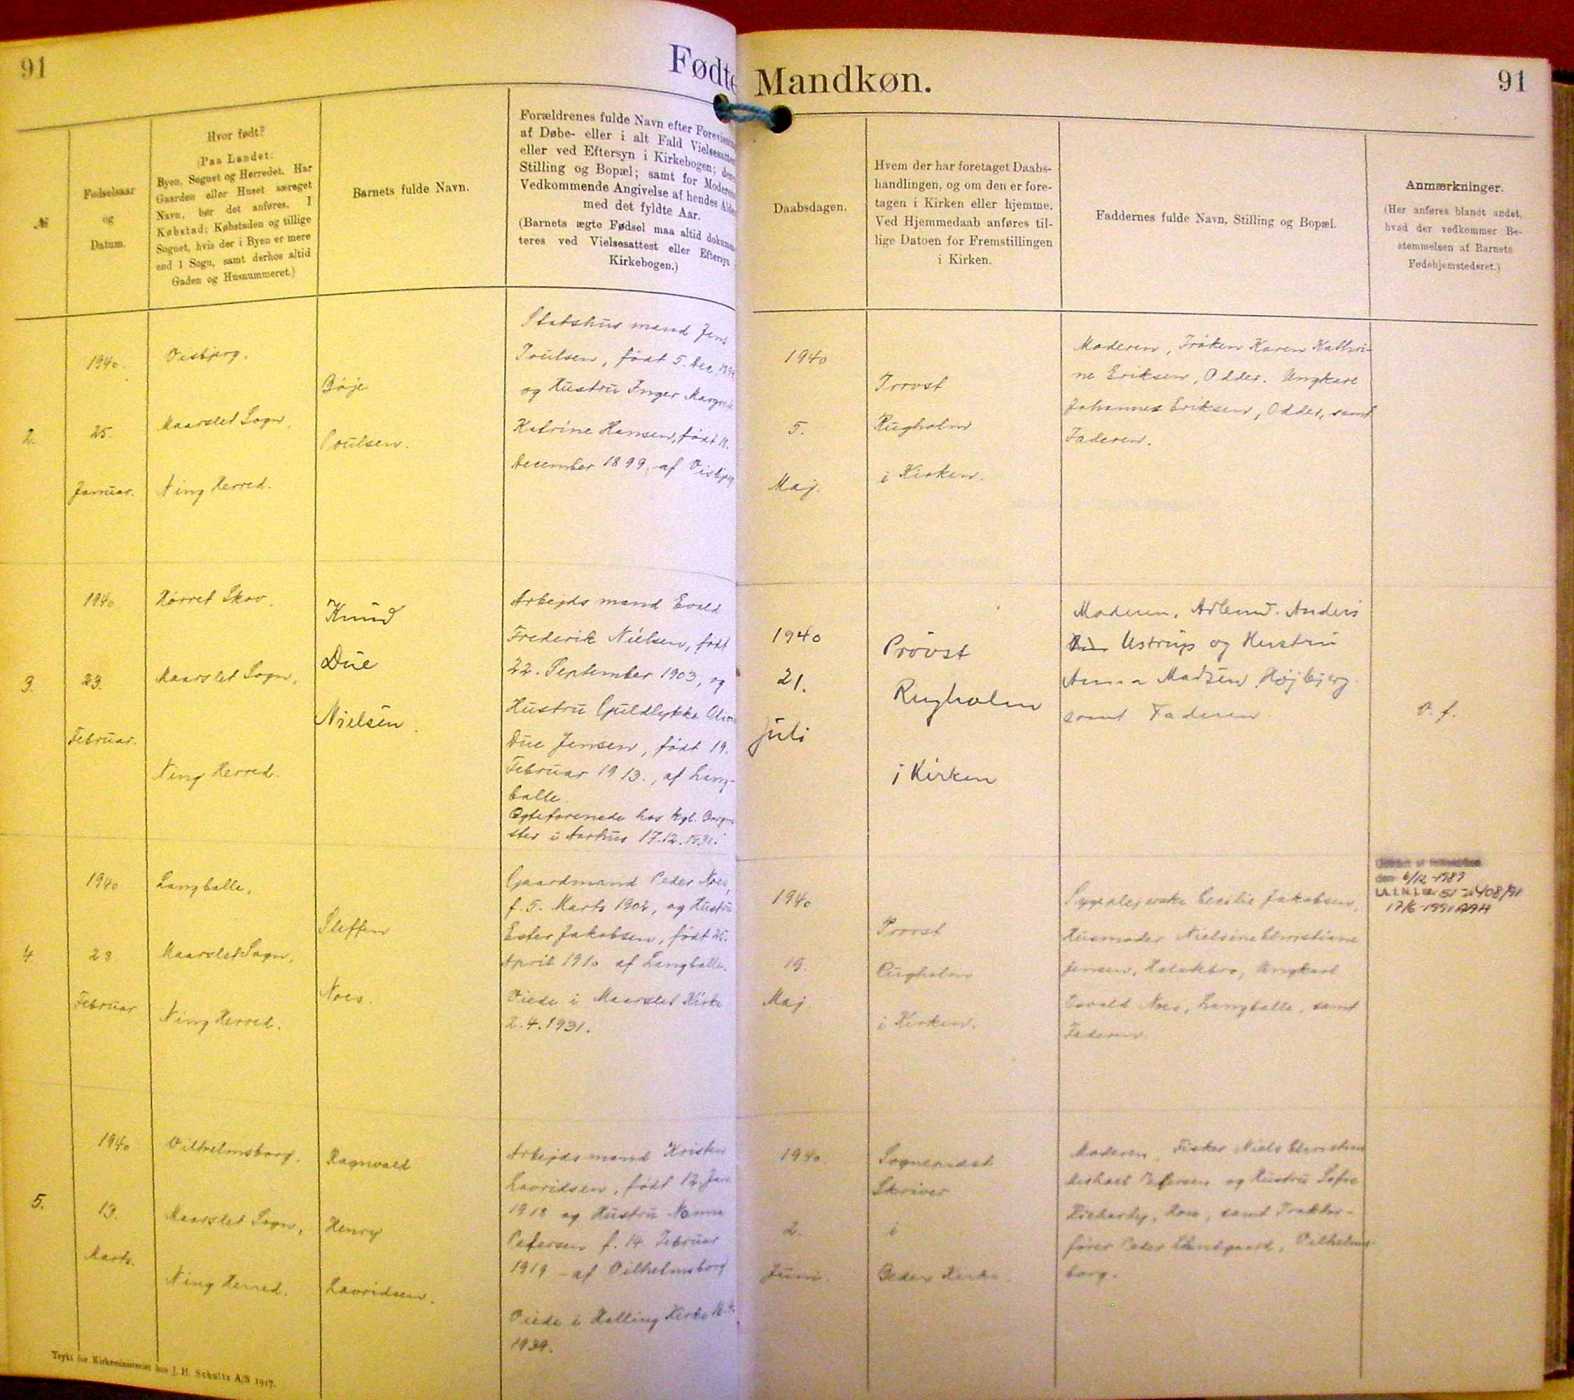 91
Fødte
Mandkøn.
91
№
Fødselsaar
og
Datum.
Hvor født?
(Paa Landet:
Byen, Sognet og Herredet. Har
Gaarden eller Huset særeget
Navn, bør det anføres. I
Købstad: Købstaden og tillige
Sognet, hvis der i Byen er mere
end 1 Sogn, samt derhos altid
Gaden og Husnummeret.)
Barnets fulde Navn.
Forældrenes fulde Navn efter
af Døbe- eller i alt Fald
eller ved Eftersyn i Kirkebogen;
Stilling og Bopæl; samt for
Vedkommende Angivelse af hendes
med det fyldte Aar.
(Barnets ægte Fødsel maa altid
teres ved Vielsesattest eller Eftersyn
Kirkebogen.)
Daabsdagen.
Hvem der har foretaget Daabs-
handlingen, og om den er fore-
tagen i Kirken eller hjemme.
Ved Hjemmedaab anføres til-
lige Datoen for Fremstillingen
i Kirken.
Faddernes fulde Navn, Stilling og Bopæl.
Anmærkninger.
(Her anføres blandt andet,
hvad der vedkommer Be-
stemmelsen af Barnets
Fødehjemstederet.)
2.
1940.
25.
Januar.
Visbjerg.
Maarslet Sogn,
Ning Herred.
Børje
Poulsen.
Statshus mand Jens
Poulsen, født 5. Dec.
og Hustru Inger
Katrine Hansen, født
December 1899, af
1940
5.
Maj.
Provst
Rugholm
i Kirken.
Moderen, Frøken Karen Kathri-
ne Eriksen, Odder. Ungkarl
Johannes Eriksen, Odder, samt
Faderen.
3.
1940
23.
Februar.
Hørret Skov.
Maarslet Sogn,
Ning Herred.
Knud
Due
Nielsen.
Arbejdsmand Evald
Frederik Nielsen, født
22. September 1903, og
Hustru Guldlykke
Due Jensen, født 19.
Februar 1913., af Lang-
balle
Ægteforenede hos kgl.
i Aarhus 17.12.1931.
1940
21.
Juli
Provst
Rugholm
i Kirken
Moderen, Anders
Ustrup og Hustru
Anna Madsen, Højbjerg.
samt Faderen
O. f.
4.
1940
23
Februar
Langballe,
Maarslet Sogn,
Ning Herred.
Steffen
Noes.
Gaardmand Peder Noes,
f. 5. Marts 1902, og Hustru
Ester Jakobsen, født
April 1910 af Langballe.
Viede i Maarslet Kirke
2.4.1931.
1940
19.
Maj.
Provst
Rugholm
i Kirken.
Sygeplejerske Cecilie Jakobsen,
Husmoder Nielsine Christiane
Jensen, Ungkarl
Noes, Langballe, samt
Faderen.
5.
1940
13.
Marts.
Vilhelmsborg.
Maarslet Sogn,
Ning Herred.
Ragnvald
Henry
Lavridsen.
Arbejdsmand Kristen
Lavridsen, født 12
1913 og Hustru Nanna
Petersen f. 14 Februar
1919 – af Vilhelmsborg
Viede i Halling Kirke
1939.
1940.
2.
Juni.
Sognepræst
Skriver
i
Beder Kirke.
Moderen, Fisker Niels Christian
og Hustru Sofie
samt Traktor-
fører Peder Vilhelms-
borg.
Trykt for Kirkeministeriet hos J. H. Schultz A/S 1917.